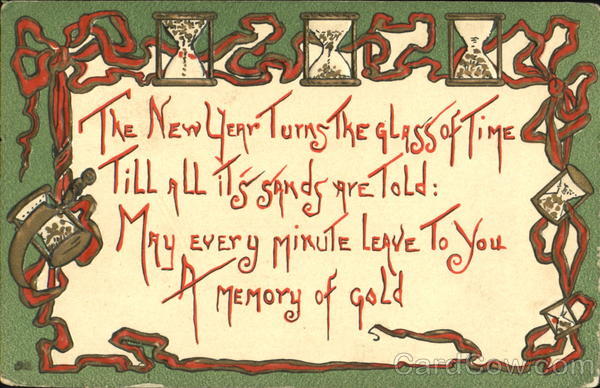 The New Year Turns The glass of Time
Till all it's sands are Told:
May every minute Leave To You
A memory of gold
CardCow.com